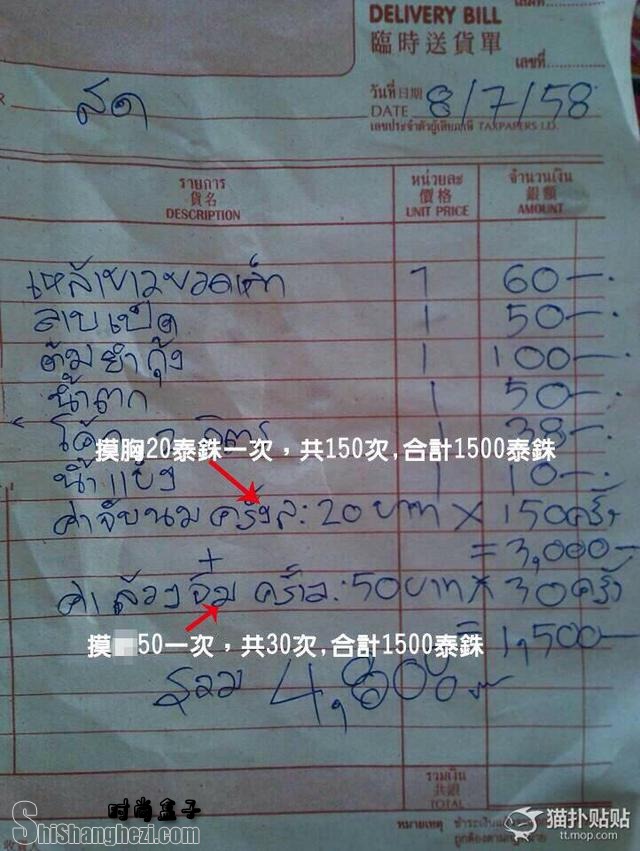 DELIVERY BILL
臨時送貨單
เลขที่
สด
วันที่日期
DATE 8/7/58
เลขประจำตัวผู้เสียภาษี TAXPAPERS I.D.
รายการ หน่วยละ จำนวนเงิน
貨名 價格 銀額
DESCRIPTION UNIT PRICE AMOUNT
เหล้าขาวยวดเห็ก 1 60-.
ลาบเป็ด 1 50-.
ต้มยำกุ้ง 1 100-.
น้ำตก 1 50-.
โค้ก ลิตร 1 38-.
摸胸20泰銖一次，共150次,合計1500泰銖
น้ำแข็ง 1 10-.
ค่าจับนม ครั้งล: 20 บาท × 150ครั้ง
= 3,000-
+
ค่าล้วงจิ๋ม ครั้งล: 50 บาท × 30ครั้ง
摸 50一次，共30次,合計1500泰銖
= 1,500-
รวม 4,808
รวมเงิน
共銀
TOTAL
时尚盒子
ShiShanghezi.com
หมายเหตุ ชำระเงิน
ถูกต้องตาม
猫扑贴贴
tt.mop.com